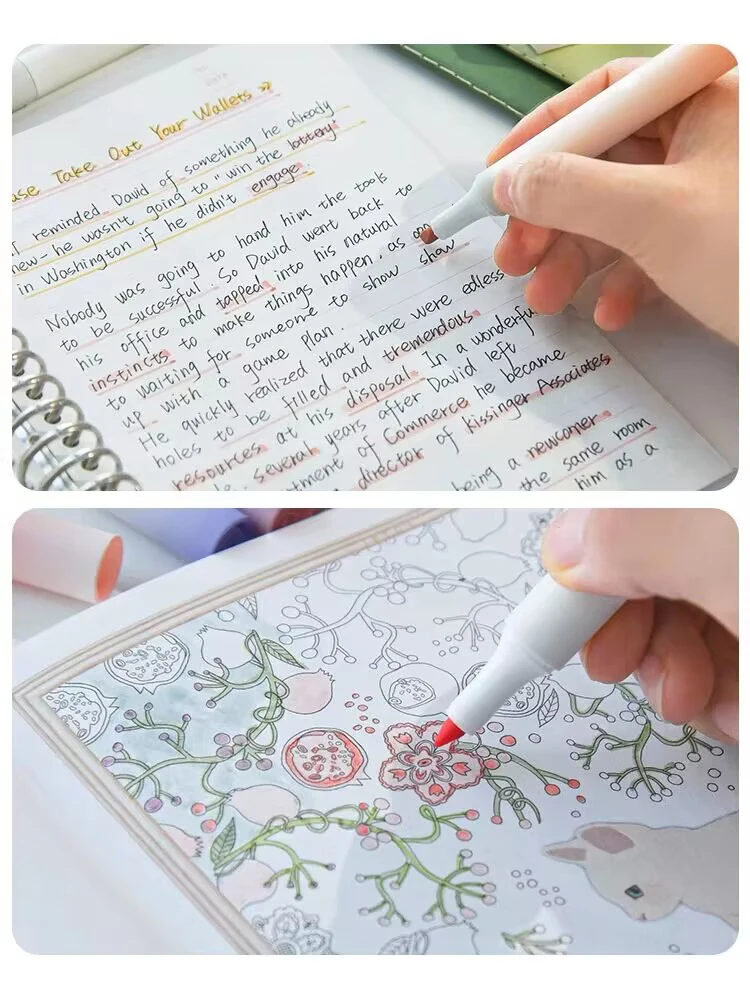 ase Take Out Your Wallets
I reminded David of something he already
new-he wasn't going to "win the lottery
in Washington if he didn't engage.
Nobody was going to hand him the tools
to be successful. So David went back to
his office and tapped into his natural
instincts to make things happen. as opp
to waiting for someone to show show
up with a game plan.
He quickly realized that there were edless
holes to be filled and tremendous
resources at his disposal. In a wonderfu
several years after David left
tment of Commerce he became
director of Kissinger Associates
being a newcomer
the same room
him as a